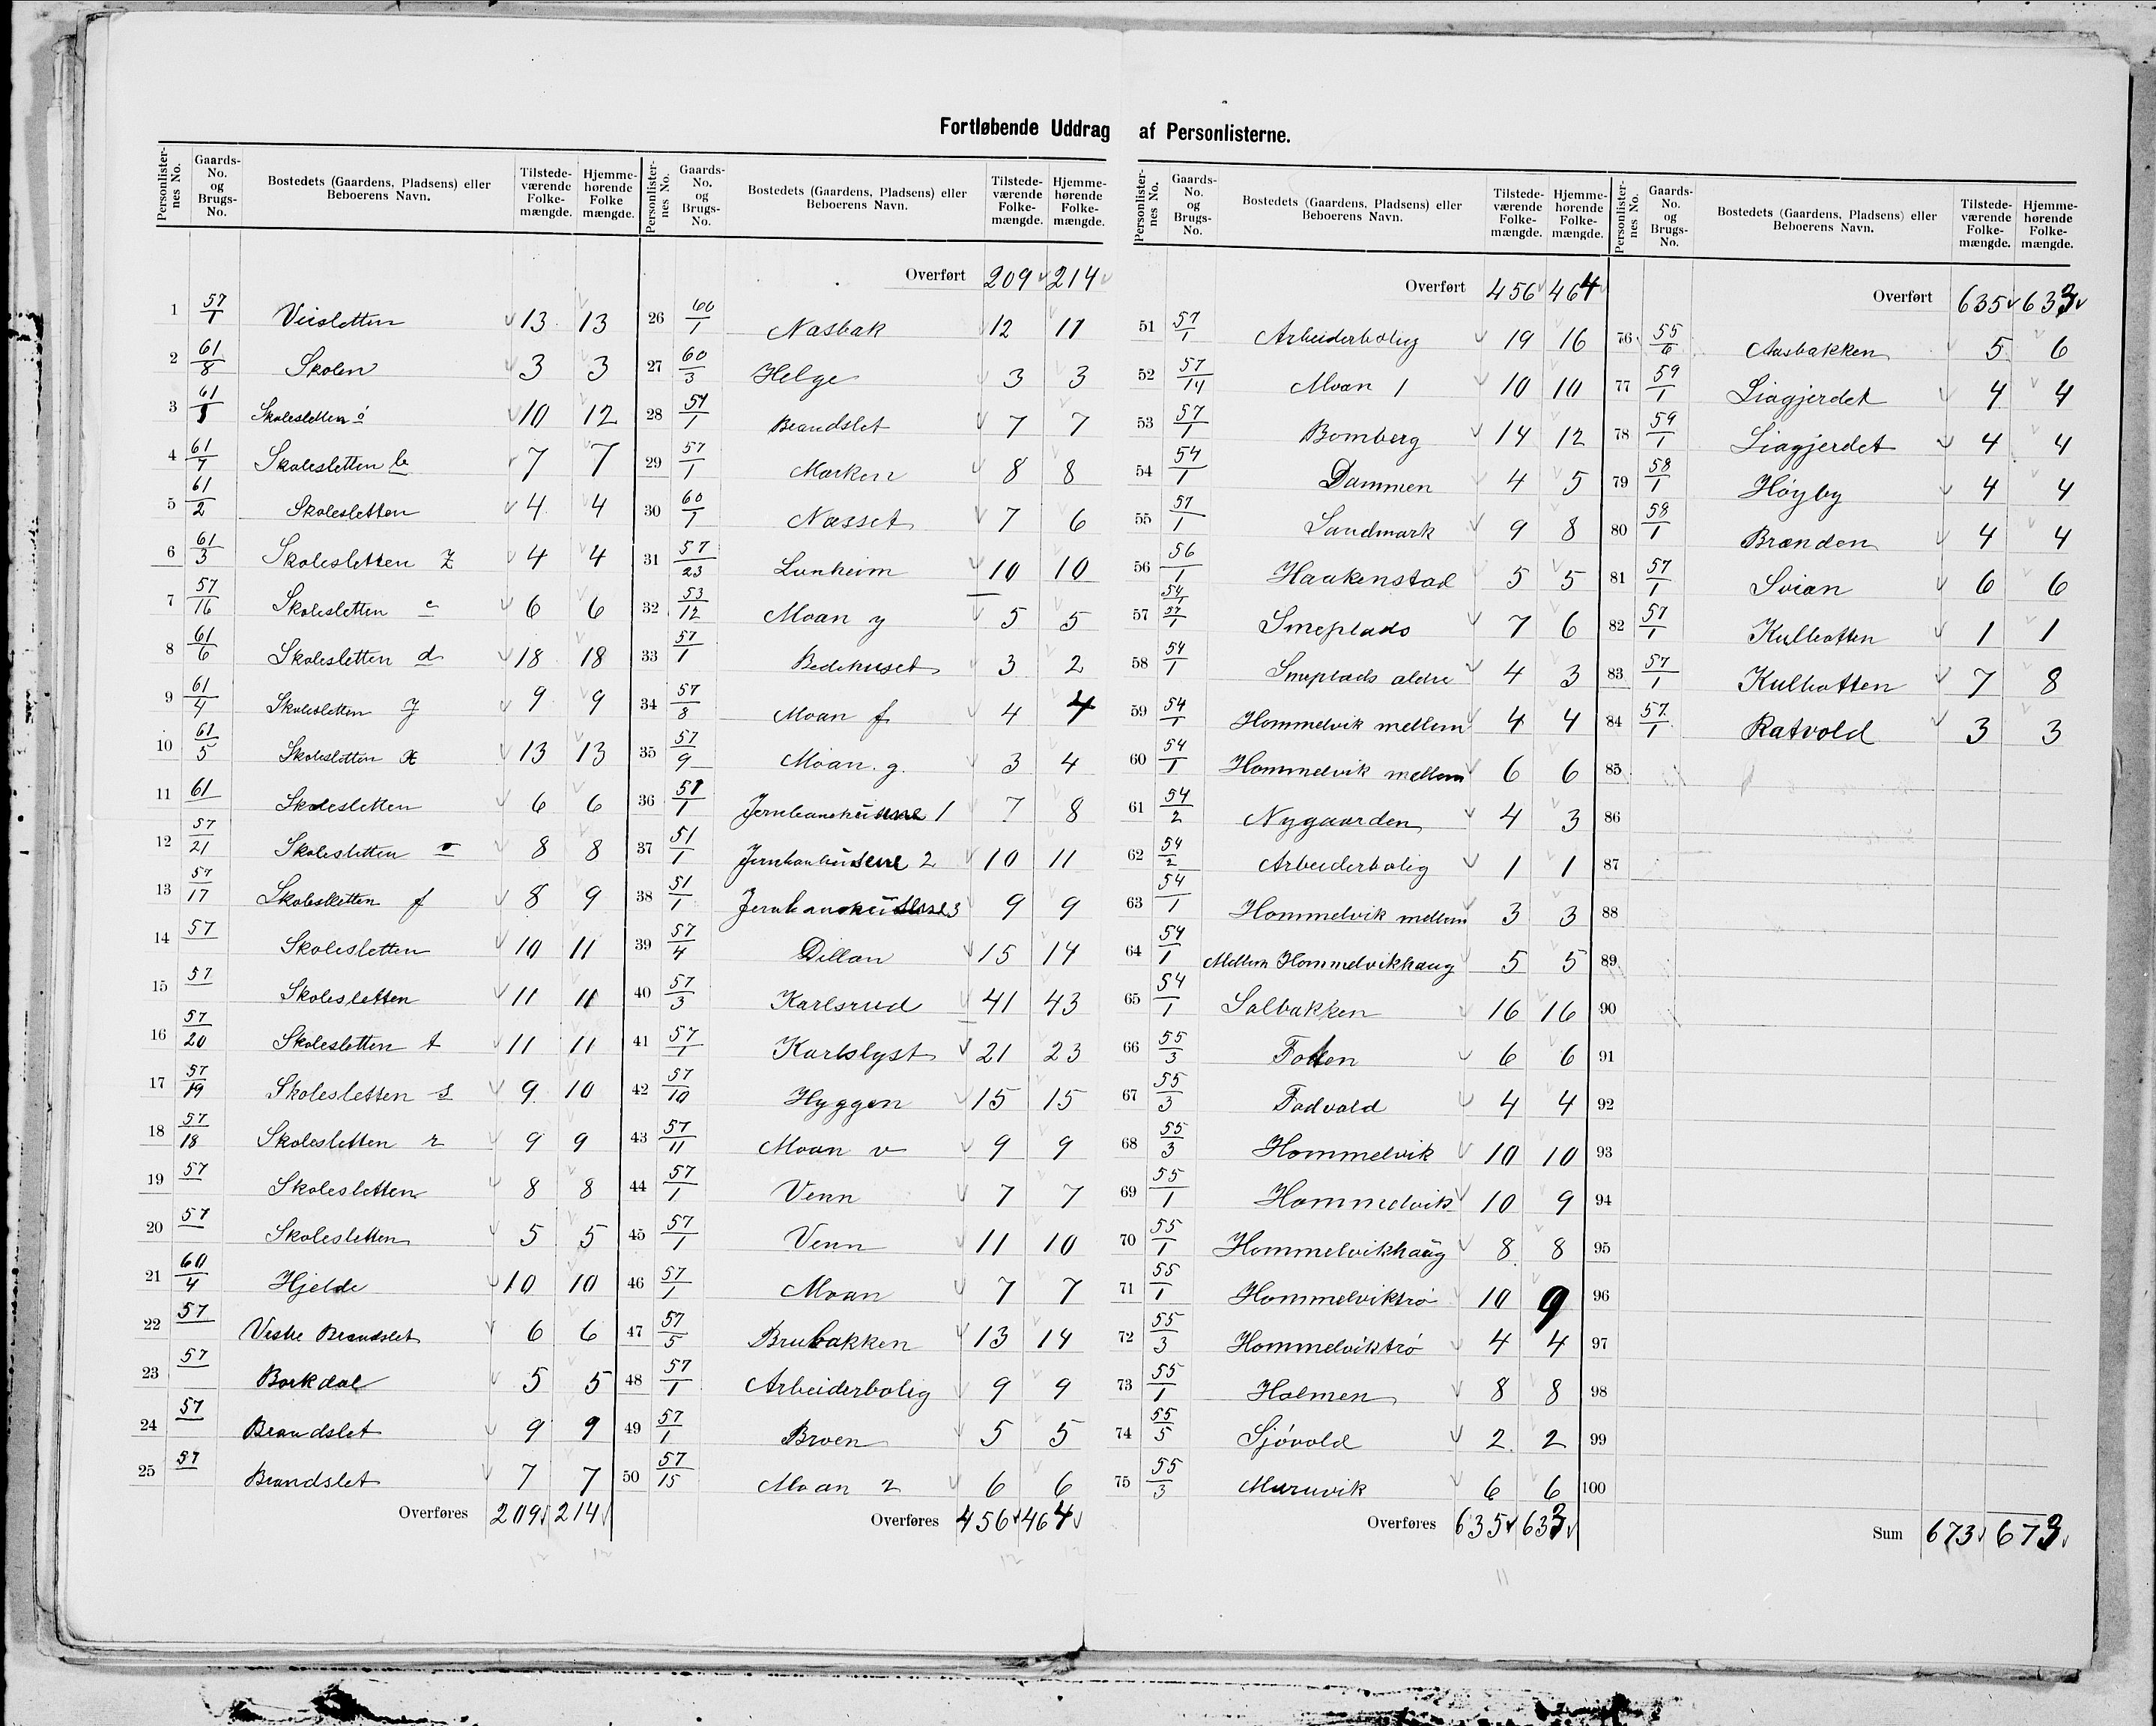 Fortløbende Uddrag af Personlisterne.
Personlisternes No. | Gaards-No. og Brugs-No. | Bostedets (Gaardens, Pladsens) eller Beboerens Navn. | Tilstedeværende Folkemængde. | Hjemmehørende Folkemængde.
1 57/1 Veisletten 13 13
2 61/8 Skolen 3 3
3 61/1 Skolesletten ö 10 12
4 61/7 Skolesletten b 7 7
5 61/2 Skolesletten 4 4
6 61/3 Skolesletten z 4 4
7 57/16 Skolesletten e 6 6
8 61/6 Skolesletten d 18 18
9 61/4 Skolesletten y 9 9
10 61/5 Skolesletten x 13 13
11 61 Skolesletten 6 6
12 57/21 Skolesletten v 8 8
13 57/17 Skolesletten f 8 9
14 57 Skolesletten 10 11
15 57 Skolesletten 11 11
16 57/20 Skolesletten t 11 11
17 57/19 Skolesletten s 9 10
18 57/18 Skolesletten r 9 9
19 57 Skolesletten 8 8
20 57 Skolesletten 5 5
21 60/4 Hjelde 10 10
22 57 Vestre Brandslet 6 6
23 57 Borkdal 5 5
24 57 Brandslet 9 9
25 57 Brandslet 7 7
Overføres 209 214
Personlisternes No. | Gaards-No. og Brugs-No. | Bostedets (Gaardens, Pladsens) eller Beboerens Navn. | Tilstedeværende Folkemængde. | Hjemmehørende Folkemængde.
Overført 209 214
26 60/1 Næsbak 12 11
27 60/3 Helge 3 3
28 57/1 Brandslet 7 7
29 57/1 Marken 8 8
30 60/1 Næsset 7 6
31 57/23 Lunheim 10 10
32 53/12 Moan y 5 5
33 57/1 Bedehuset 3 2
34 57/8 Moan f 4 4
35 57/9 Moan g. 3 4
36 51/1 Jernbanehusene 1 7 8
37 51/1 Jernbanehusene 2 10 11
38 51/1 Jernbanehusene 3 9 9
39 57/4 Dillan 15 14
40 57/3 Karlsrud 41 43
41 57/1 Karlslyst 21 23
42 57/10 Hyggen 15 15
43 57/11 Moan v 9 9
44 57/1 Venn 7 7
45 57/1 Venn 11 10
46 57/1 Moan 7 7
47 57/5 Brubakken 13 14
48 57/1 Arbeiderbolig 9 9
49 57/1 Broen 5 5
50 57/15 Moan 2 6 6
Overføres 456 464
Personlisternes No. | Gaards-No. og Brugs-No. | Bostedets (Gaardens, Pladsens) eller Beboerens Navn. | Tilstedeværende Folkemængde. | Hjemmehørende Folkemængde.
Overført 456 464
51 57/1 Arbeiderbolig 19 16
52 57/14 Moan 1 10 10
53 57/1 Bomberg 14 12
54 54/1 Dammen 4 5
55 57/1 Sandmark 9 8
56 56/1 Haakenstad 5 5
57 54/1 57/1 Smeplads 7 6
58 54/1 Smeplads ældre 4 3
59 54/1 Hommelvik mellem 4 4
60 54/1 Hommelvik mellem 6 6
61 54/2 Nygaarden 4 3
62 54/2 Arbeiderbolig 1 1
63 54/1 Hommelvik mellem 3 3
64 54/1 Mellem Hommelvikhaug 5 5
65 54/1 Solbakken 16 16
66 55/3 Fotten 6 6
67 55/3 Fodvold 4 4
68 55/3 Hommelvik 10 10
69 55/1 Hommelvik 10 9
70 55/1 Hommelvikhaug 8 8
71 55/1 Hommelviktrø 10 9
72 55/3 Hommelviktrø 4 4
73 55/1 Holmen 8 8
74 55/5 Sjøvold 2 2
75 55/3 Muruvik 6 6
Overføres 635 633
Personlisternes No. | Gaards-No. og Brugs-No. | Bostedets (Gaardens, Pladsens) eller Beboerens Navn. | Tilstedeværende Folkemængde. | Hjemmehørende Folkemængde.
Overført 635 633
76 55/6 Aasbakken 5 6
77 59/1 Liagjerdet 4 4
78 59/1 Liagjerdet 4 4
79 58/1 Høyby 4 4
80 58/1 Brænden 4 4
81 57/1 Svian 6 6
82 57/1 Kulbotten 1 1
83 57/1 Kulbotten 7 8
84 57/1 Ratvold 3 3
85
86
87
88
89
90
91
92
93
94
95
96
97
98
99
100
Sum 673 673